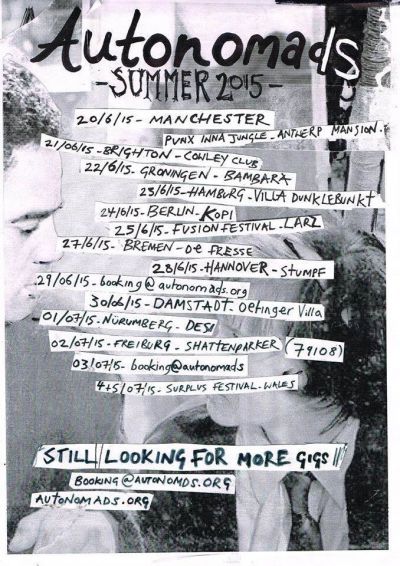 Autonomads
-SUMMER 2015-
20/6/15-MANCHESTER
PUNX INNA JUNGLE-ANTWERP MANSION.
21/06/15-BRIGHTON-COWLEY CLUB
22/6/15-GRONINGEN-BAMBARA
23/6/15-HAMBURG-VILLA DUNKLEBUNKT
24/6/15-BERLIN-KOPI
25/6/15-FUSION FESTIVAL-LARZ
27/6/15-BREMEN-De FRESSE
28/6/15-HANNOVER-STUMPF
29/06/15-booking@autonomads.org
30/06/15-DAMSTADT-Oetinger Villa
01/07/15-NÜRUMBERG-DESI
02/07/15-FREIBURG-SHATTENPARKER (79108)
03/07/15-booking@autonomads
4+5/07/15-SURPLUS FESTIVAL-WALES
STILL LOOKING FOR MORE GIGS!!
BOOKING@AUTONOMDS.ORG
AUTONOMADS.ORG